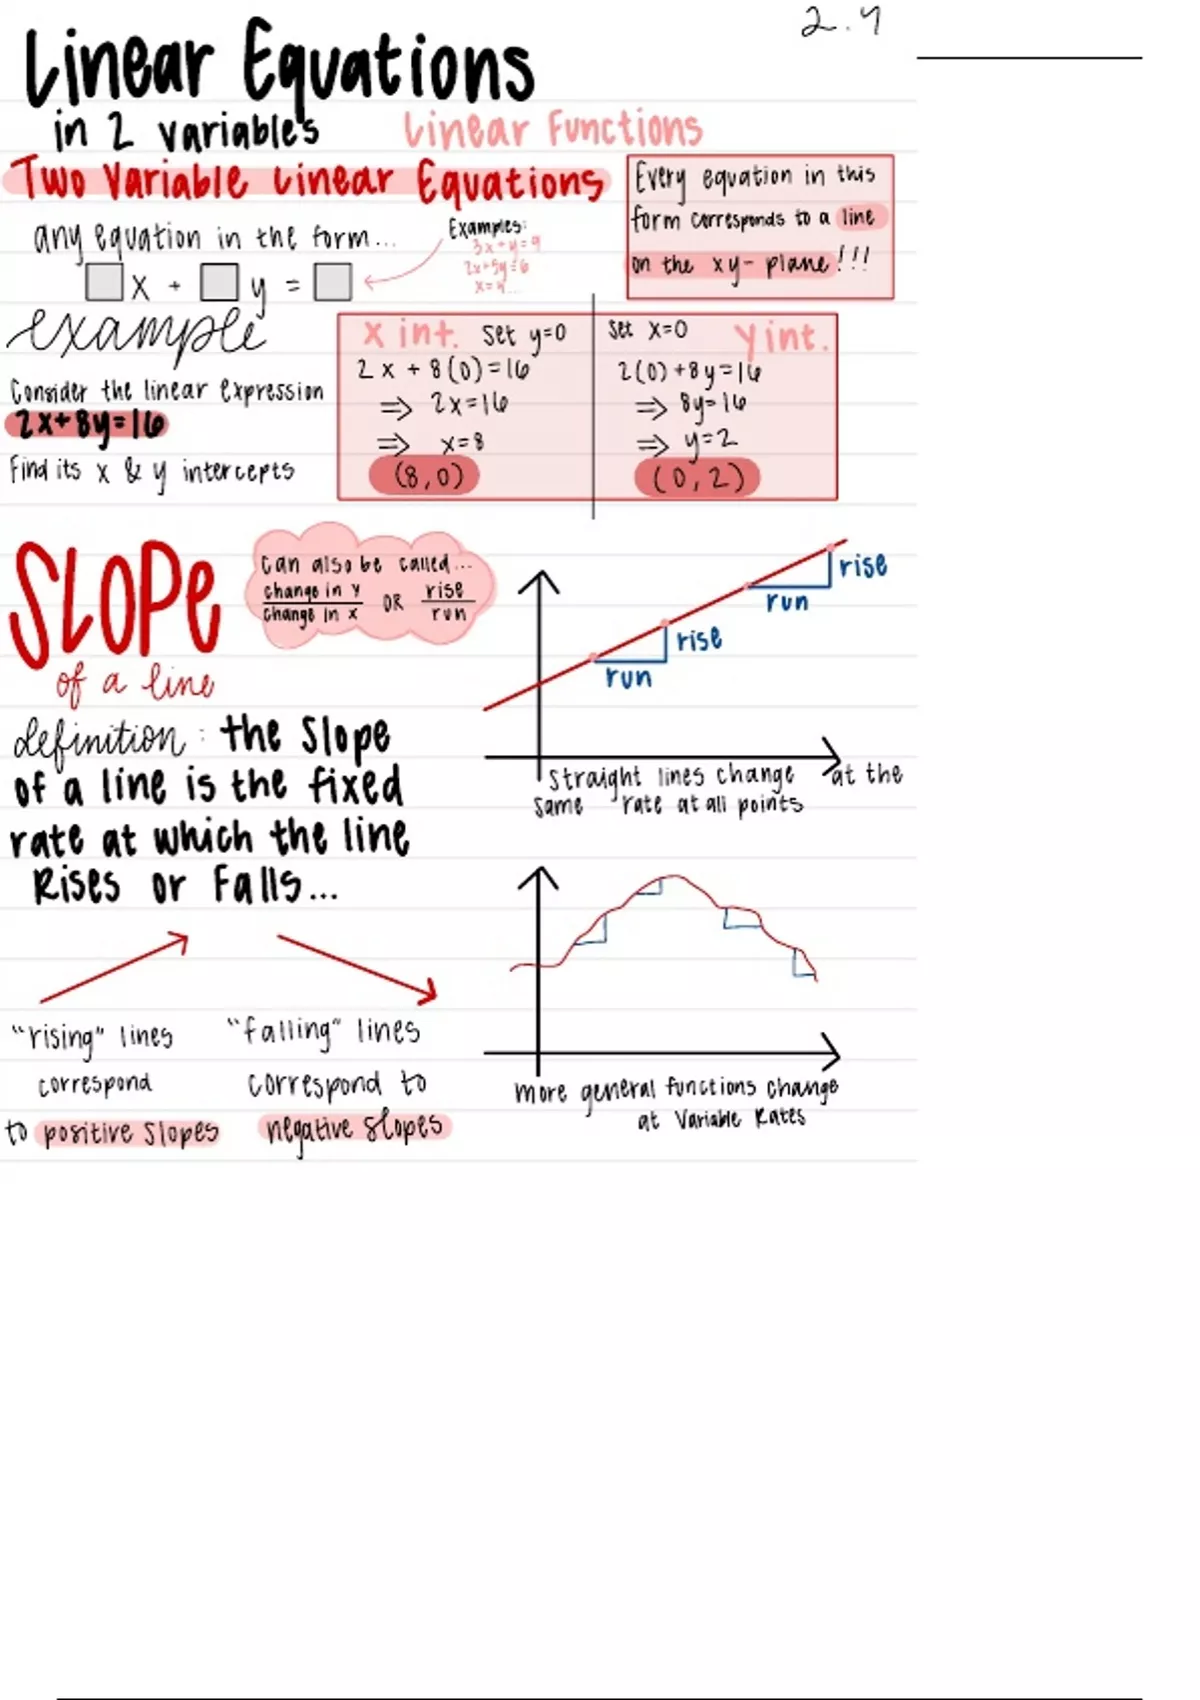 2.4
Linear Equations
in 2 variables
Linear Functions
Two Variable Linear Equations
Every equation in this
form corresponds to a line
on the xy-plane!!!
any equation in the form...
x + y =
Examples:
3x+y=9
2x+5y=6
example
Consider the linear expression
2x+8y=16
Find its x & y intercepts
x int. set y=0
2x + 8(0)=16
⇒ 2x=16
⇒ x=8
(8,0)
set x=0 y int.
2(0)+8y=16
⇒ 8y=16
⇒ y=2
(0,2)
SLOPE
of a line
can also be called...
change in y
change in x
OR
rise
run
definition: the slope
of a line is the fixed
rate at which the line
Rises or Falls...
rise
run
rise
run
straight lines change at the
same rate at all points
"rising" lines
correspond
to positive slopes
"falling" lines
correspond to
negative slopes
more general functions change
at variable Rates